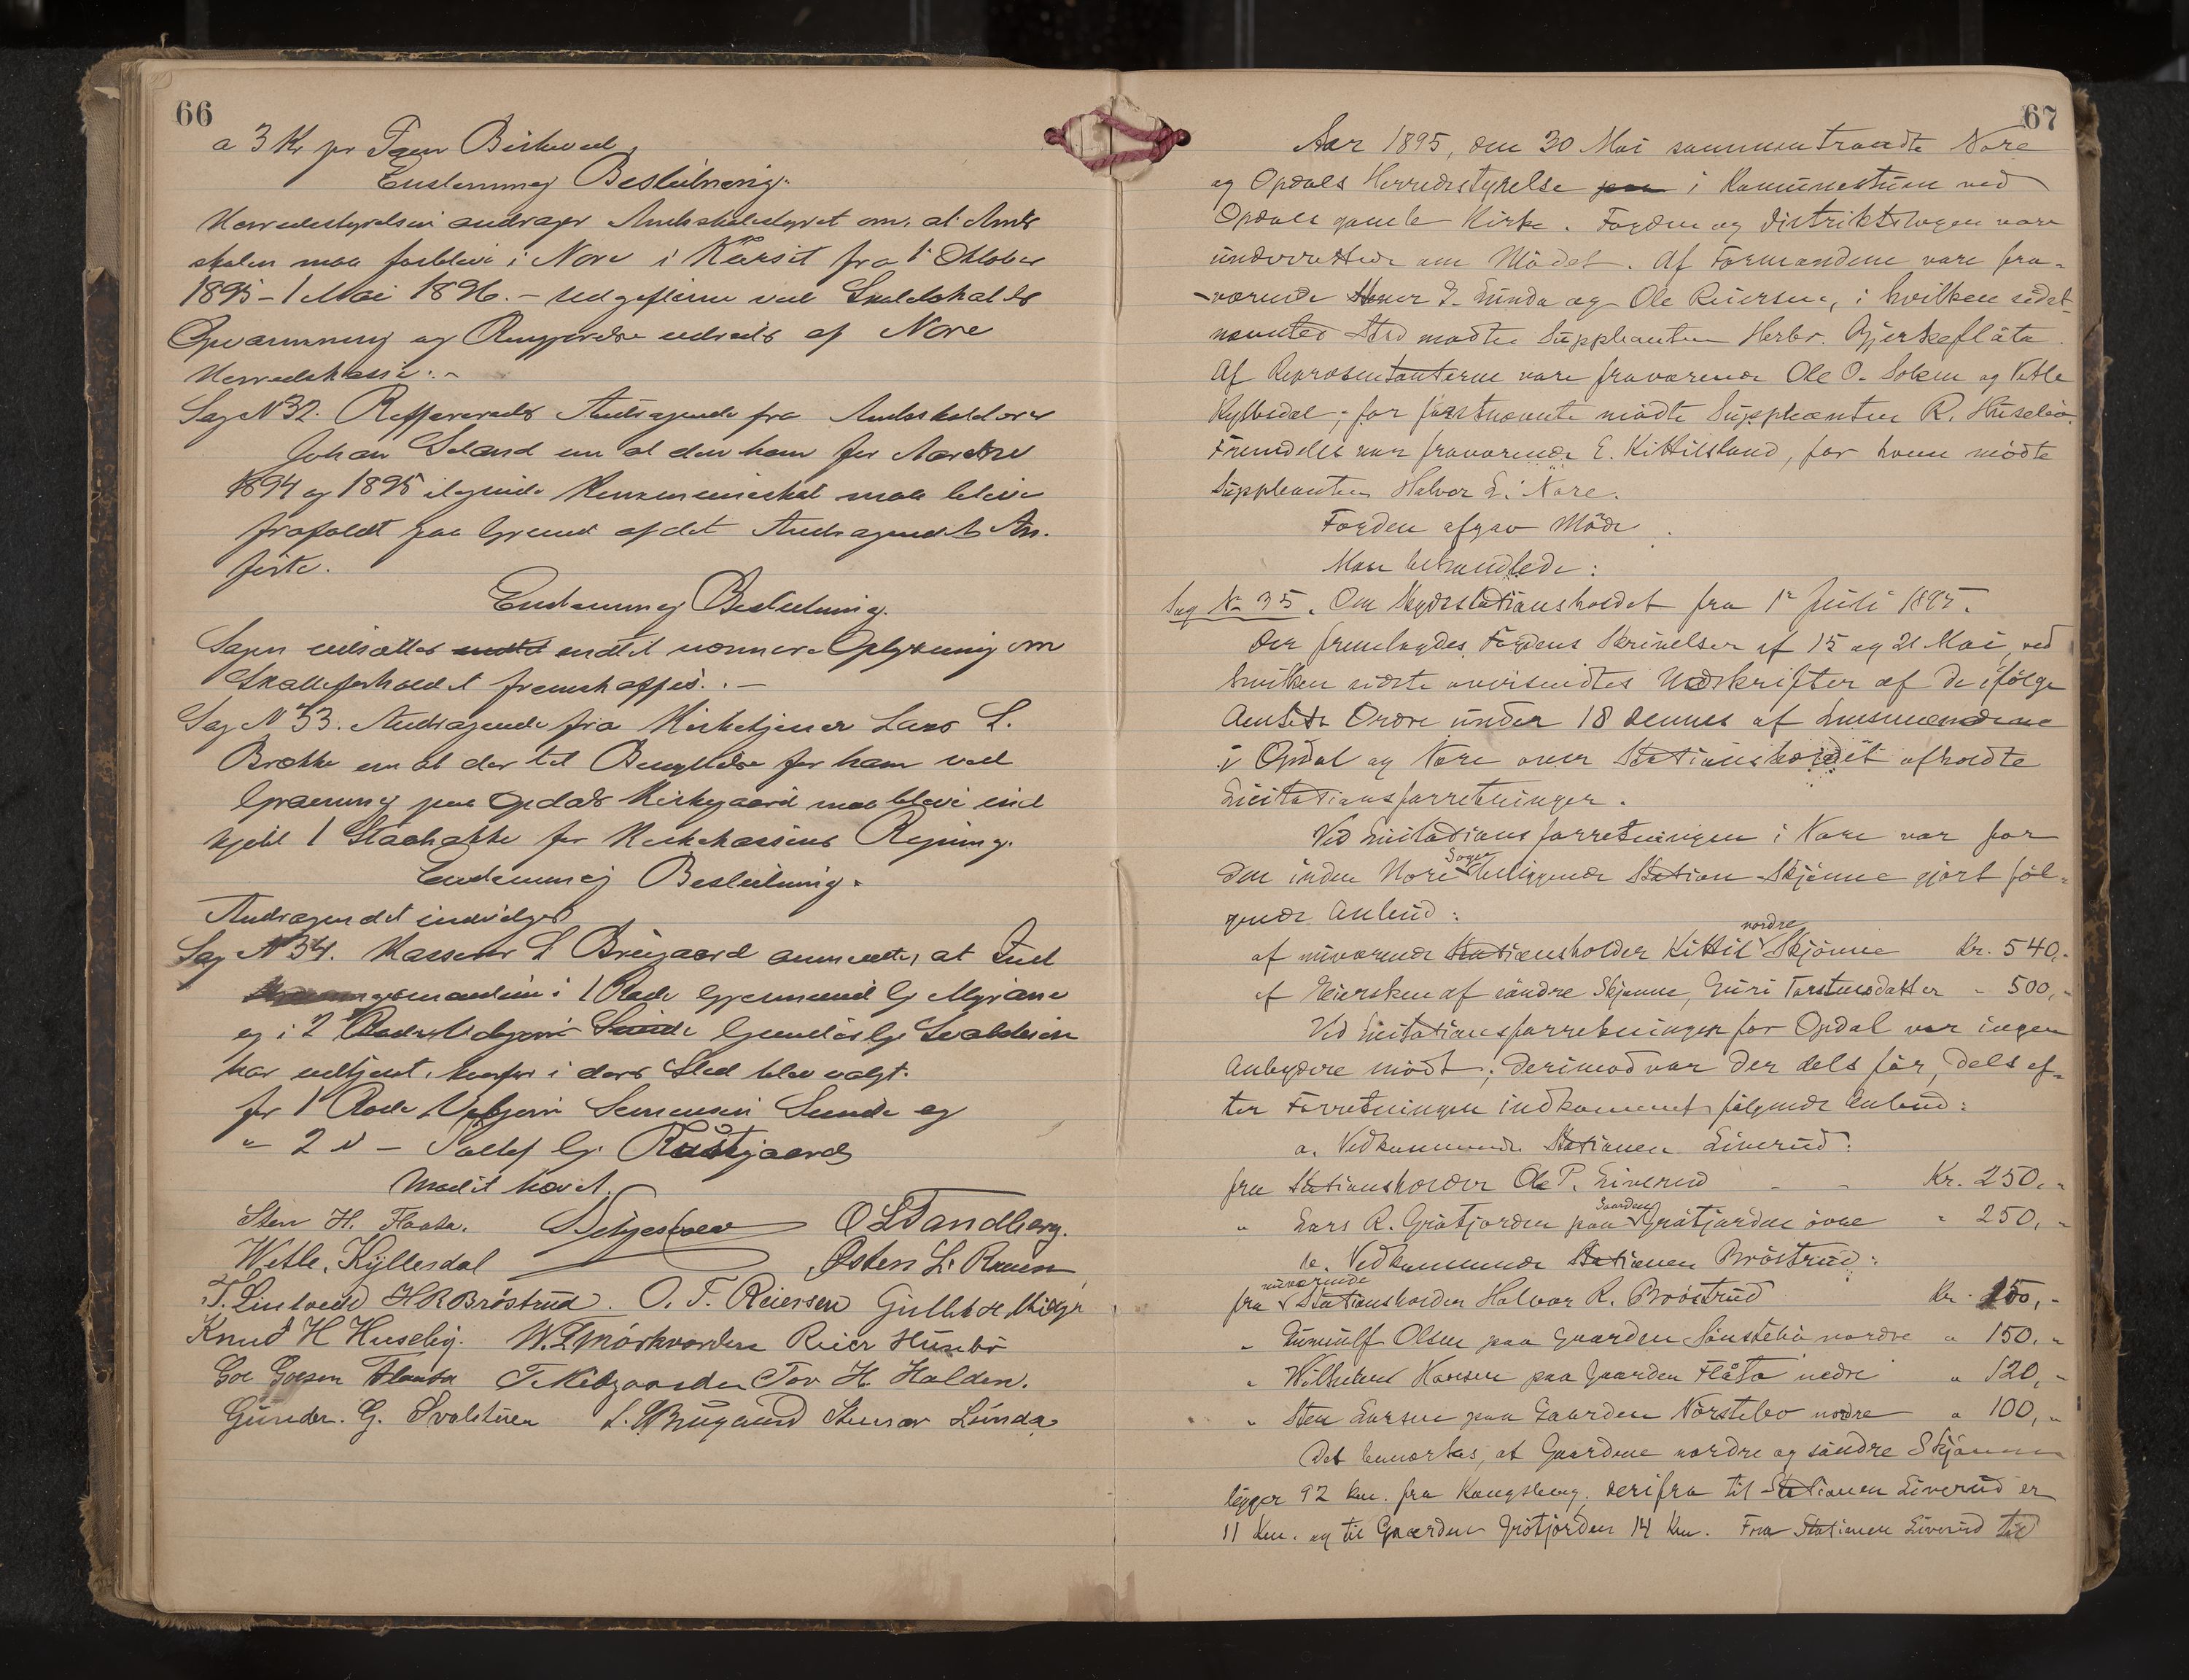 66
a 3 Kr pr Favn Birkeved.
Enstemmig Beslutning.
Herredsstyrelsen andrager Amtsskolestyret om, at Amts
skolen maa forblive i Nore i Kursit fra 1 Oktober
1895 - 1 Mai 1896. - Udgifterne ved
Opvarmning og Rengjørelse udredes af Nore
Herredskasse. -
Sag N 32. Reffereredes Andragende fra
Johan om at den ham for Aarene
1894 og 1895 ilignede Kommuneskat maa blive
frafaldt paa Grund af det Andragendet An-
førte.
Enstemmig Beslutning.
Sagen udsættes indtil nærmere Oplysning om
Skatteforholdet fremskaffes. . -
Sag N 33. Andragende fra Kirketjener Lars L.
Brække om at der til Benyttelse for ham ved
Gravning paa Opdals Kirkegaard maa blive ind
kjøbt 1 for Kirkekassens Regning.
Enstemmig Beslutning.
Andragendet indvilges
Sag N 34. Kasserer L Bruгaard anmeldte, at
i 1 Rode G Myrane
og i 2 Gunder G. Svalstuen
har udtjent, hvorfor i deres Sted blev valgt.
for 1 Rode Sunde og
" 2 " -
Mødet hævet.
Sten H. Flaata. O L Tandberg.
Wetle. Kyllesdal Østen L. Raaen
T. Lintvedt H R Bröstrud. O. T. Reiersen
Knud H Huseby. Reier Hüsebö
Tov H. Halden.
Günder. G. Svalstuen Steinar Lünda.
67
Aar 1895, den 30 Mai sammentraadte Nore
og Opdals Herredsstyrelse paa i Komünestüen ved
Opdals gamle Kirke. Fogden og distriktslægen vare
ünderrettede om Mödet. Af Formændene vare fra-
-værende S. Lünda og Ole Reiersen, i hvilken sidst
nævntes Sted mödte Süppleanten Herbr. Bjerkeflata.
Af Representanterne vare fraværende Ole O. Solem og Vetle
Kyllesdal, for förstnævnte mödte Süppleanten R. Hüsebö.
Fremdeles var fraværende E. Kittilsland, for hvem mödte
Süppleanten Halvor L. Nore.
Fogden afgav Möde.
Man behandlede:
Sag No 35. Om Skydsstationsholdet fra 1ste Juli 1895.
Der fremlagdes Fogdens Skrivelser af 15 og 21 Mai, ved
hvilken sidste oversendtes Udskrifter af de ifölge
Amtets Ordre ünder 18 dennes af Lensmændene
i Opdal og Nore over Stationsholdet afholdte
Licitationsforretninger.
Ved Licitationsforretningen i Nore var for
den inden Nore Sogn beliggende Station Skjönne gjort föl-
gende Anbüd:
af nüværende Stationsholder Kittil nordre Skjönne Kr. 540,-
af Eiersken af söndre Skjönne, Güri Torstensdatter " 500,-
Ved Licitationsforretningen for Opdal var ingen
Anbydere mödt; derimod var der dels för, dels ef-
ter Forretningen indkommet fölgende Anbüd:
a. Vedkommende Stationen Liverüd:
fra Stationsholder Ole P. Liverüd - - Kr. 250,-
" Lars R. Grötjorden paa Gaarden Grötjorden övre " 250,-
b. Vedkommende Stationen Bröstrüd:
fra nüværende Stationsholder Halvor R. Bröstrüd Kr. 150,-
" Günnülf Olsen paa Gaarden Sönstebö nordre " 150,-
" Wilhelm Hansen paa Gaarden Flåta nedre " 120,-
" Sten Larsen paa Gaarden Nörstebö nordre " 100,-
Det bemærkes, at Gaardene nordre og söndre Skjönne
ligger 92 km. fra Kongsberg, derifra til Stationen Liverüd er
11 Km. og til Gaarden Grötjorden 14 Km. Fra Stationen Liverüd til